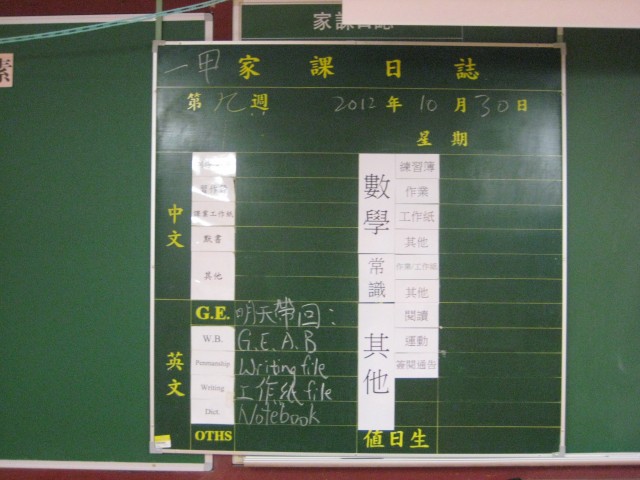 家課日誌
素
一甲 家課日誌
第 九 週 2012 年 10 月 30 日
星期
中文
默書
其他
數學
練習簿
作業
工作紙
其他
常識
作業/工作紙
其他
G.E. 明天帶回:
英文
W.B. G.E. A.B
Penmanship Writing file
Writing 工作紙 file
Dict. Notebook
OTHS
其他
閱讀
運動
簽閱通告
值日生